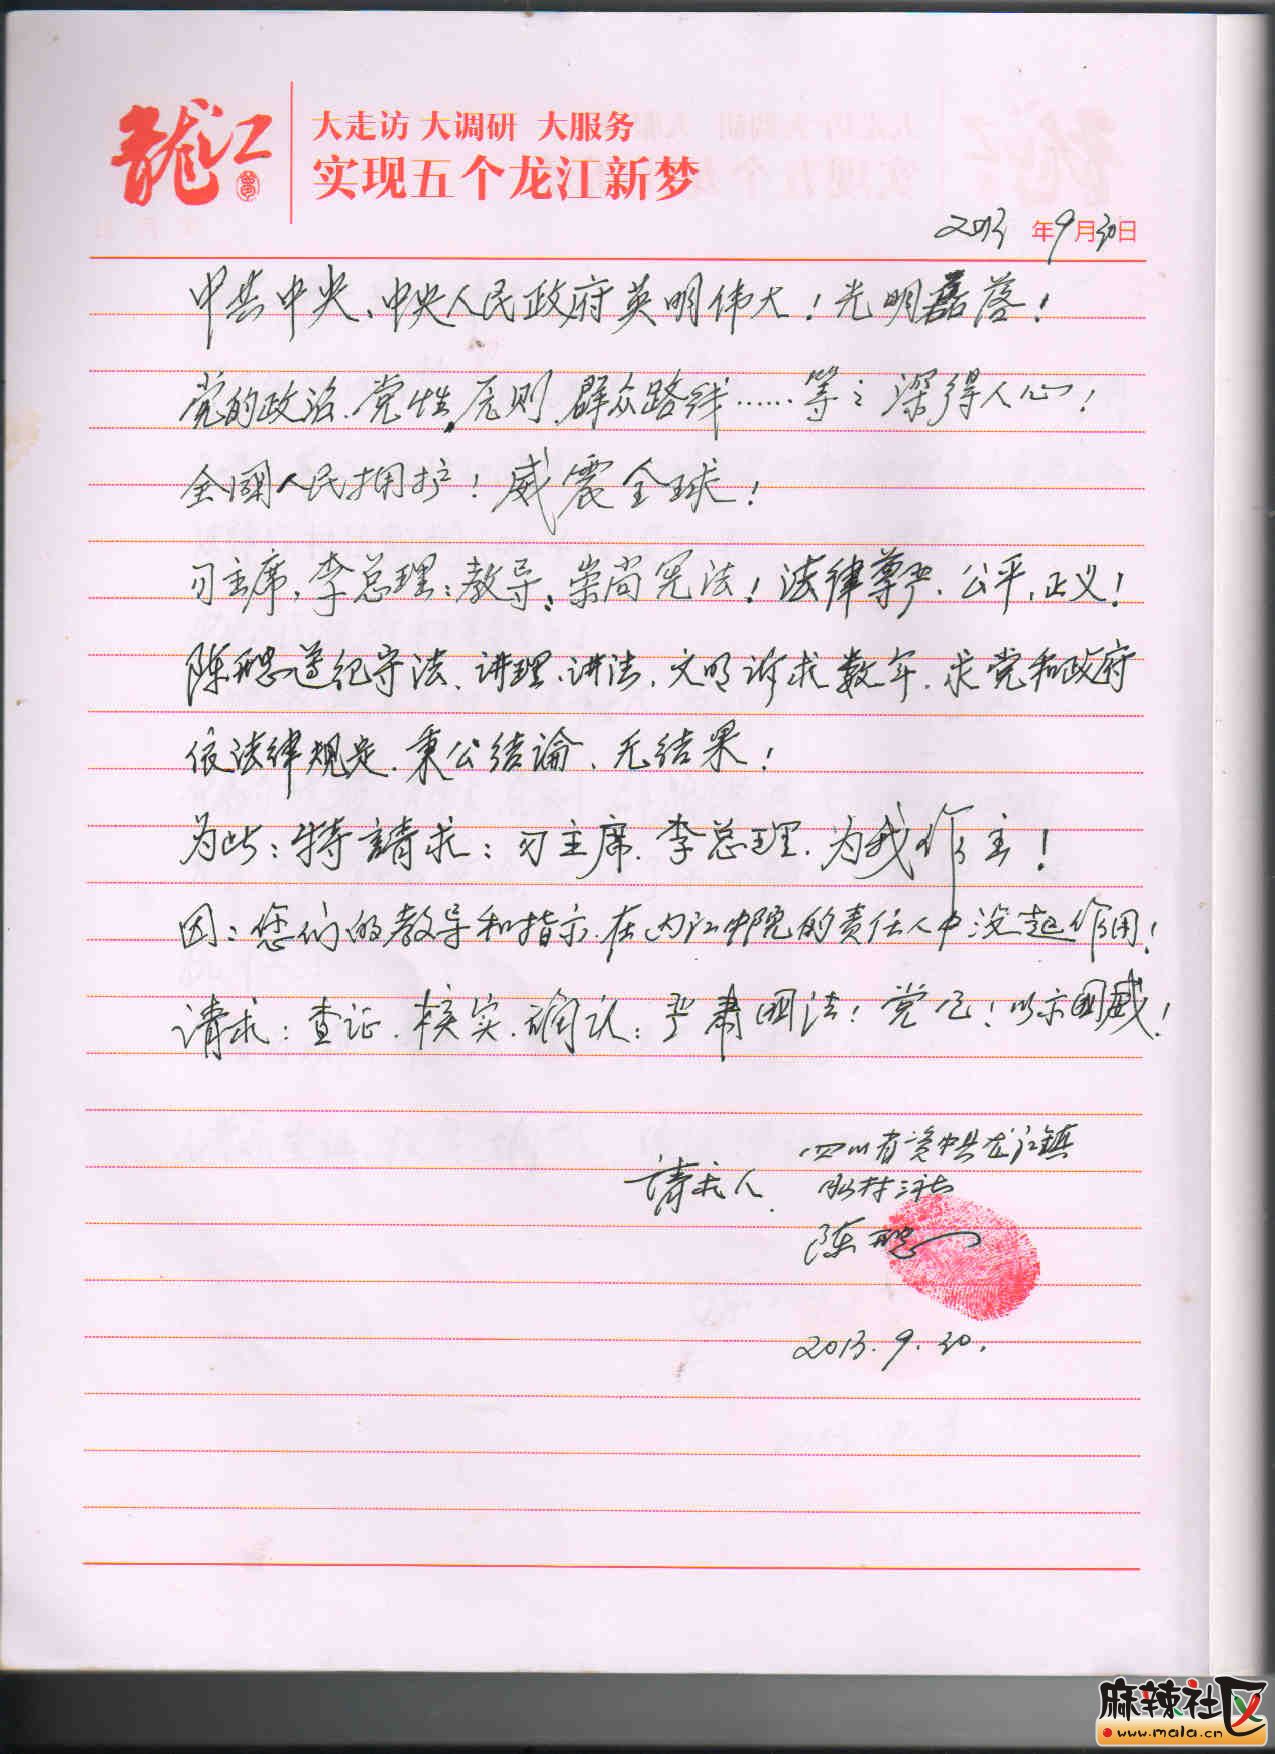 龍江
大走访 大调研 大服务
实现五个龙江新梦
2013 年9月30日
中共中央、中央人民政府英明伟大！光明磊落！
党的政治、党性原则、群众路线……等：深得人心！
全國人民拥护！威震全球！
习主席、李总理：教导：崇尚宪法！法律尊严、公平、正义！
陈聪遵纪守法、讲理、讲法、文明诉求数年、求党和政府
依法律规定、秉公结论、无结果！
为此：特請求：习主席、李总理、为我作主！
因：您们的教导和指示、在内江中院的责任人中没起作用！
请求：查证、核实、确认：严肃国法！党纪！以示国威！
请求人
四川省资中县龙江镇
村三社
陈聪
2013.9.30.
麻辣社区
www.mala.cn